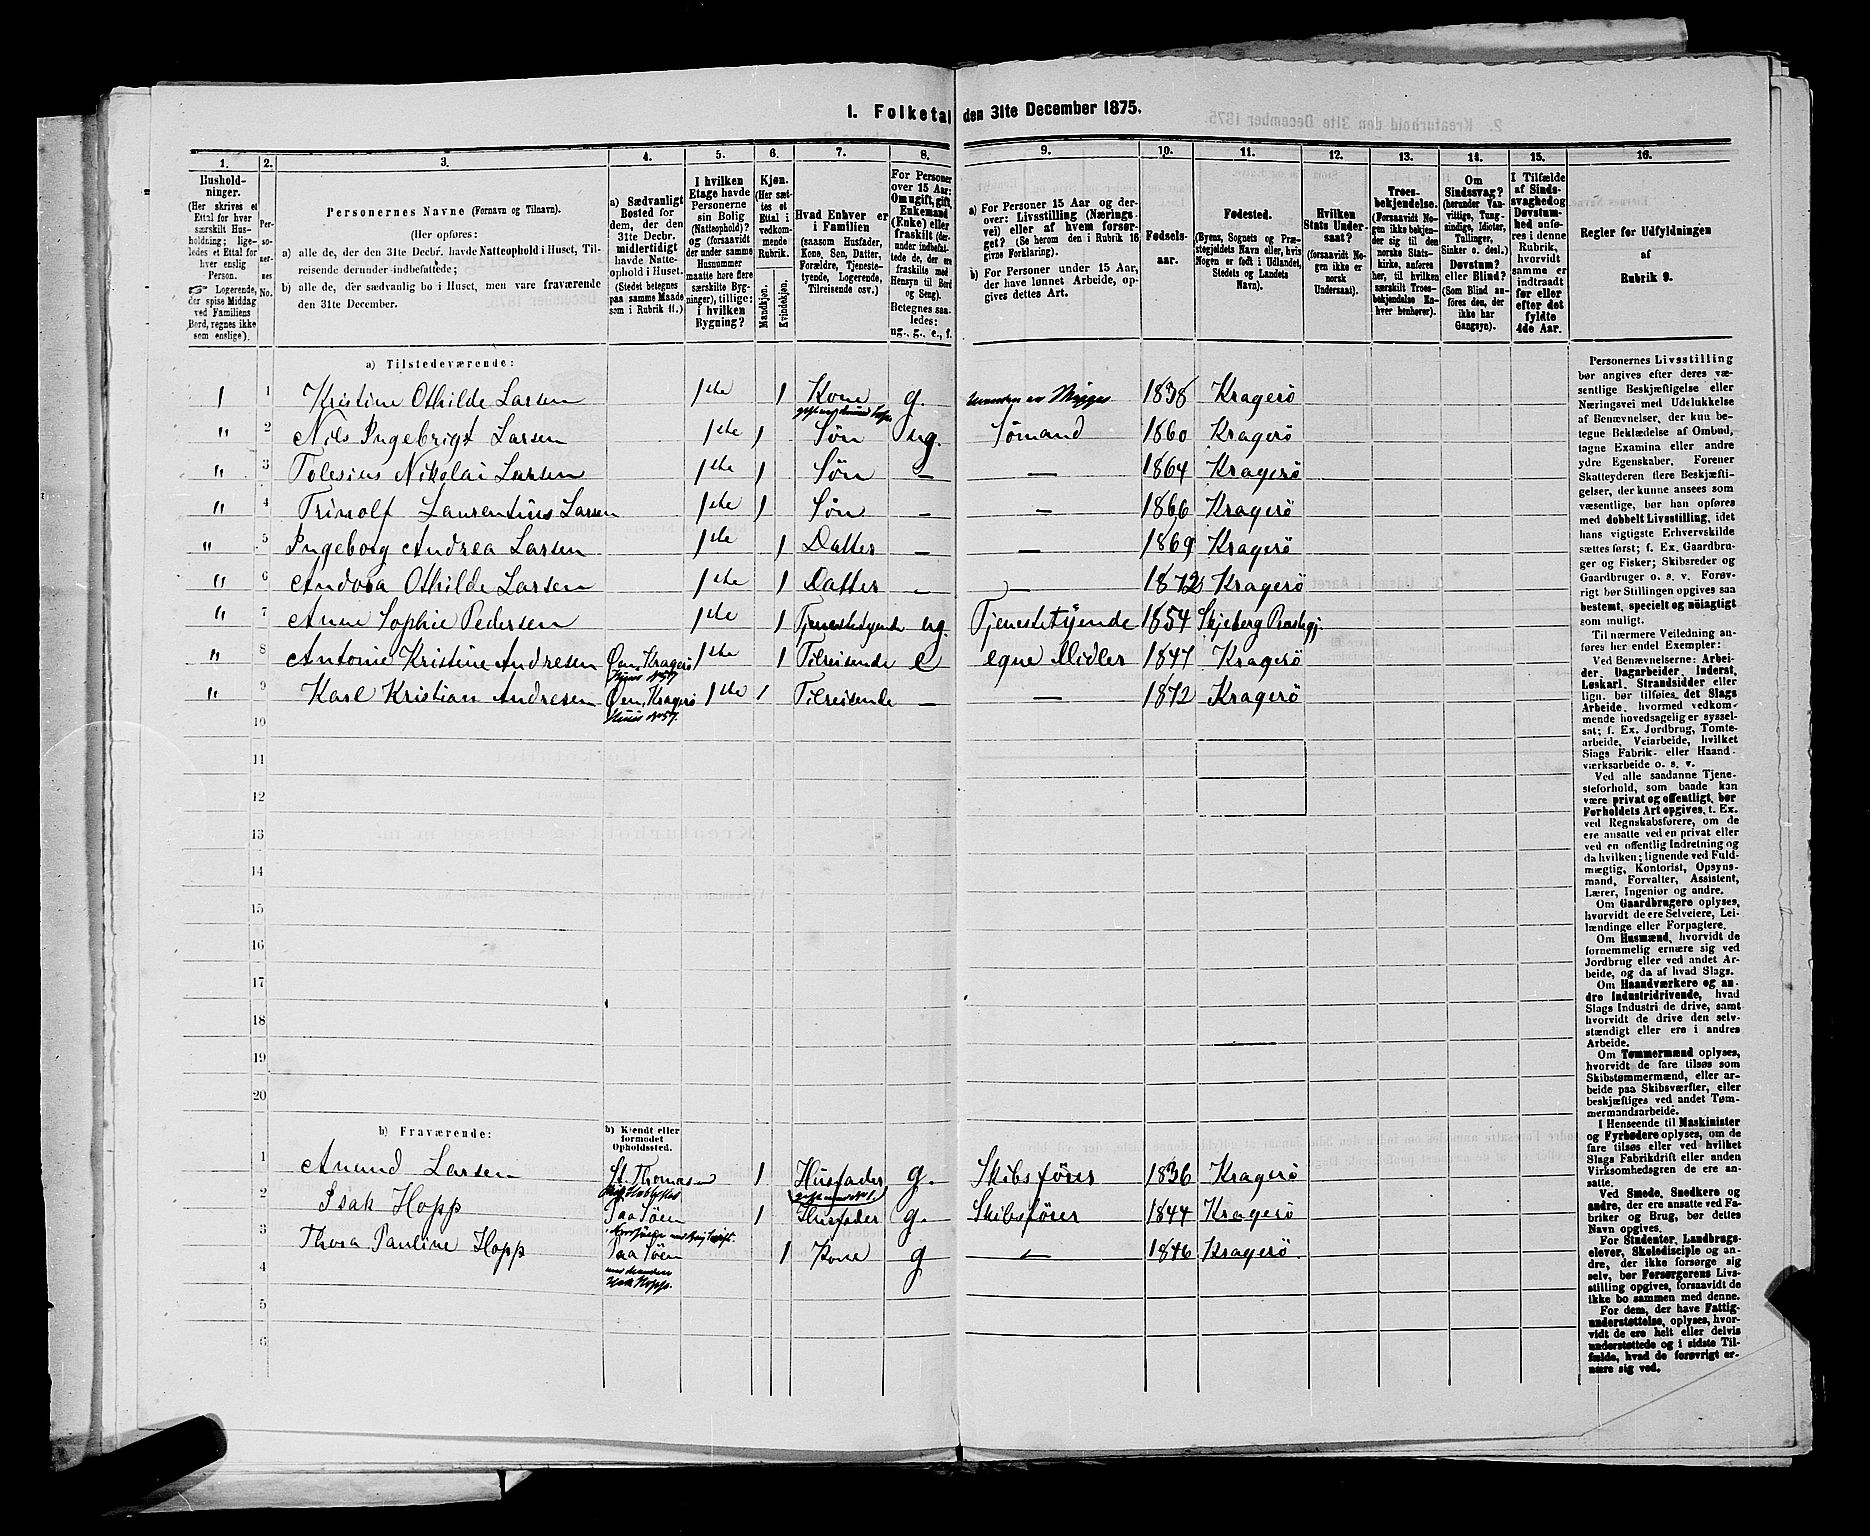 1. Folketal den 31te December 1875.
1. 2. 3. 4. 5. 6. 7. 8. 9. 10. 11. 12. 13. 14. 15. 16.
Hushold-
ninger.
(Her skrives et
Ettal for hver
særskilt Hus-
holdning; lige-
ledes et Ettal for
hver enslig
Person.
☞ Logerende,
der spise Middag
ved Familiens
Bord, regnes ikke
som enslige).
Per-
so-
ner-
nes
No.
Personernes Navne (Fornavn og Tilnavn).
(Her opføres:
a) alle de, der den 31te Decbr. havde Natteophold i Huset, Til-
reisende derunder indbefattede;
b) alle de, der sædvanlig bo i Huset, men vare fraværende
den 31te December.
a) Sædvanligt
Bosted for
dem, der den
31te Decbr.
midlertidigt
havde Natte-
ophold i Huset.
(Stedet betegnes
paa samme Maade
som i Rubrik 11.)
I hvilken
Etage havde
Personerne
sin Bolig
(Natteophold)?
og (forsaavidt
der under samme
Husnummer
maatte høre flere
særskilte Byg-
ninger), tillige:
i hvilken
Bygning?
Kjøn.
(Her sæt-
tes et
Ettal i
vedkom-
mende
Rubrik.
Mandkjøn.
Kvindekjøn.
Hvad Enhver er
i Familien
(saasom Husfader,
Kone, Søn, Datter,
Forældre, Tjeneste-
tyende, Logerende,
Tilreisende osv.)
For Personer
over 15 Aar:
Om ugift, gift,
Enkemand
(Enke) eller
fraskilt (der-
under indbefat-
tede de, der ere
fraskilte med
Hensyn til Bord
og Seng).
Betegnes saa-
ledes:
ug., g., e., f.
a) For Personer 15 Aar og der-
over: Livsstilling (Nærings-
vei) eller af hvem forsør-
get? (Se herom den i Rubrik 16
givne Forklaring).
b) For Personer under 15 Aar,
der have lønnet Arbeide, op-
gives dettes Art.
Fødsels-
aar.
Fødested.
(Byens, Sognets og Præ-
stegjeldets Navn eller, hvis
Nogen er født i Udlandet,
Stedets og Landets
Navn).
Hvilken
Stats Under-
saat?
(forsaavidt No-
gen ikke er
norsk
Undersaat).
Troes-
bekjendelse.
(Forsaavidt No-
gen ikke bekjen-
der sig til den
norske Stats-
kirke, anføres
her, til hvilken
særskilt Troes-
bekjendelse En-
hver henhører).
Om
Sindssvag?
(herunder Van-
vittige, Tung-
sindige, Idioter,
Tullinger,
Sinker o. desl.).
Døvstum?
eller Blind?
(Som Blind an-
føres den, der
ikke har
Gangsyn).
I Tilfælde
af Sinds-
svaghed og
Døvstum-
hed anfø-
res i denne
Rubrik,
hvorvidt
samme er
indtraadt
før eller
efter det
fyldte
4de Aar.
Regler for Udfyldningen
af
Rubrik 9.
a) Tilstedeværende:
1 1 Kristine Othilde Larsen 1ste 1 Kone g. 1838 Kragerö
" 2 Nils Ingebrigt Larsen 1ste 1 Sön ug. Sömand 1860 Kragerö
" 3 Tolesius Nikolai Larsen 1ste 1 Sön — — 1864 Kragerö
" 4 Trinolf Laurentius Larsen 1ste 1 Sön — — 1866 Kragerö
" 5 Ingeborg Andrea Larsen 1ste 1 Datter — — 1869 Kragerö
" 6 Andora Othilde Larsen 1ste 1 Datter — — 1872 Kragerö
" 7 Anne Sophie Pedersen 1ste 1 Tjenestetyende ug. Tjenestetyende 1854 Skjeberg Præstegj.
" 8 Antonie Kristine Andresen Øen, Kragerö 1ste 1 Tilreisende e egne Midler 1847 Kragerö
Huus No 57
" 9 Karl Kristian Andresen Øen, Kragerö 1ste 1 Tilreisende — — 1872 Kragerö
Huus No 57.
10
11
12
13
14
15
16
17
18
19
20
b) Fraværende:
b) Kjendt eller
formodet
Opholdssted.
1 Anund Larsen St. Thomas 1 Husfader g. Skibsförer 1836 Kragerö
2 Isak Hopp Paa Söen 1 Husfader g. Skibsförer 1844 Kragerö
3 Thora Pauline Hopp Paa Söen 1 Kone g — 1846 Kragerö.
med Manden
Isak Hopp.
4
5
6
Personernes Livsstilling
bør angives efter deres væ-
sentlige Beskjæftigelse eller
Næringsvei med Udelukkelse
af Benævnelser, der kun be-
tegne Beklædelse af Ombud,
tagne Examina eller andre
ydre Egenskaber. Forener
Skatteyderen flere Beskjæfti-
gelser, der kunne ansees som
væsentlige, bør han opføres
med dobbelt Livsstilling, idet
hans vigtigste Erhvervskilde
sættes først; f. Ex. Gaardbru-
ger og Fisker; Skibsreder og
Gaardbruger o. s. v. Forøv-
rigt bør Stillingen opgives saa
bestemt, specielt og nöiagtigt
som muligt.
Til nærmere Veiledning an-
føres her endel Exempler:
Ved Benævnelserne: Arbei-
der, Dagarbeider, Inderst,
Løskarl, Strandsidder eller
lign. bør tilføies, det Slags
Arbeide, hvormed vedkom-
mende hovedsagelig er syssel-
sat; f. Ex. Jordbrug, Tomte-
arbeide, Veiarbeide, hvilket
Slags Fabrik- eller Haand-
værksarbeide o. s. v.
Ved alle saadanne Tjene-
steforhold, som baade kan
være privat og offentligt, bør
Forholdets Art opgives, t. Ex.
ved Regnskabsførere, om de
ere ansatte ved en privat eller
ved en offentlig Indretning og
da hvilken; lignende ved Fuld-
mægtig, Kontorist, Opsyns-
mand, Forvalter, Assistent,
Lærer, Ingeniør og andre.
Om Gaardbrugere oplyses,
hvorvidt de ere Selveiere, Lei-
lændinge eller Forpagtere.
Om Husmænd, hvorvidt de
fornemmelig ernære sig ved
Jordbrug eller ved andet Ar-
beide, og da af hvad Slags.
Om Haandværkere og an-
dre Industridrivende, hvad
Slags Industri de drive, samt
hvorvidt de drive den selv-
stændigt eller ere i andres
Arbeide.
Om Tømmermænd oplyses,
hvorvidt de fare tilsøs som
Skibstømmermænd, eller ar-
beide paa Skibsværfter, eller
beskjæftiges ved andet Tøm-
mermandsarbeide.
I Henseende til Maskinister
og Fyrbødere oplyses, om de
fare tilsøs eller ved hvilket
Slags Fabrikdrift eller anden
Virksomhedsgren de ere an-
satte.
Ved Smede, Snedkere og
andre, der ere ansatte ved Fa-
briker og Brug, bør dettes
Navn opgives.
For Studenter, Landbrugs-
elever, Skoledisciple og an-
dre, der ikke forsørge sig
selv, bør Forsørgerens Livs-
stilling opgives, forsaavidt de
ikke bo sammen med denne.
For dem, der have Fattig-
understøttelse, oplyses, hvor-
vidt de ere helt eller delvis
understøttede og i sidste Til-
fælde, hvad de forøvrigt er-
nære sig ved.